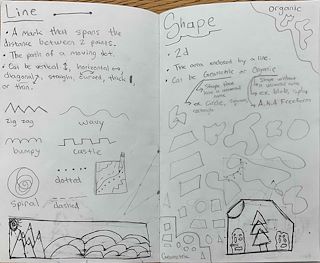 Line
• A mark that spans the
distance between 2 points.
• The path of a moving dot.
• Can be vertical ↕, horizontal ↔
diagonal ↗, straight, curved, thick
or thin.
zig zag
wavy
bumpy
castle
spiral
dotted
dashed
organic
Shape
• 2d
• The area enclosed by a line.
• Can be Geometric or Organic
Shape that
has a
name
ex. Circle, Square,
rectangle
Shape without
a
name
ex. blob,
A.K.A Freeform
Geometric